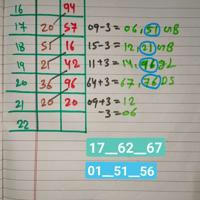 16 94
17 20 57 09-3=06, 51 GB
18 51 16 15-3=12, 21 GB
19 21 42 11+3=14, 96 GL
20 36 96 64+3=67, 76 DS
21 20 20 09+3=12
-3=06
22
17__62__67
01__51__56